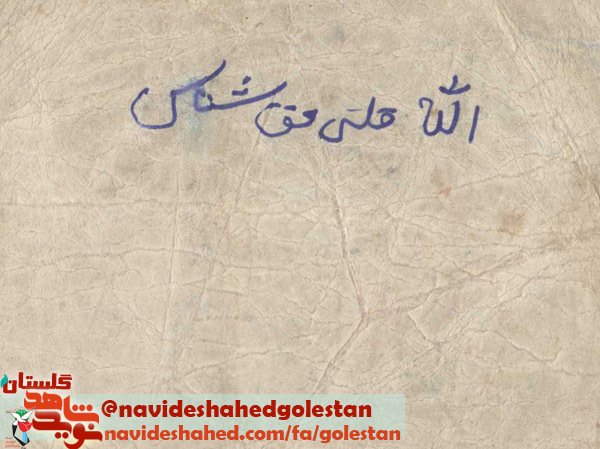 الله قلی حق شناس
گلستان
نوید شاهد
@navideshahedgolestan
navideshahed.com/fa/golestan